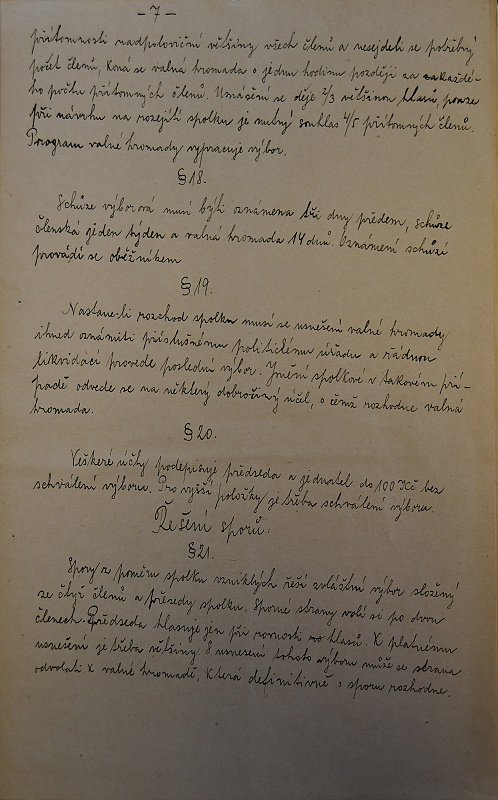 – 7 –
přítomnosti nadpoloviční většiny všech členů a nesejdeli se potřebný
počet členů, koná se valná hromada o jednu hodinu později za každé-
ho počtu přítomných členů. Usnášení se děje 2/3 většinou hlasů pouze
při návrhu na rozejití spolku je nutný souhlas 4/5 přítomných členů.
Porogram valné hromady vypracuje výbor.
§ 18.
Schůze výborová musí býti oznámena tři dny předem, schůze
členská jeden týden a valná hromada 14 dnů. Oznámení schůzí
provádí se oběžníkem
§ 19.
Nastane-li rozchod spolku musí se usnešení valné hromady
ihned oznámiti příslušnému politickému úřadu a řádnou
likvidaci provede poslední výbor. Jmění spolkové v takovém pří-
padě odvede se na některý dobročiný účel, o čemž rozhodne valná
hromada.
§ 20.
Veškeré účty podepisuje předseda a jednatel do 100 Kč bez
schválení výboru. Pro vyšší položky je třeba schválení výboru.
Řešení sporů:
§ 21.
Spory z poměru spolku vzniklých řeší zvláštní výbor složený
ze čtyř členů a předsedy spolku. Sporné strany volí si po dvou
členech. Předseda hlasuje jen při rovnosti hlasů. K platnému
usnešení je třeba většiny. S usnesení tohoto výboru může se strana
odvolati k valné hromadě, která definitivně o sporu rozhodne.